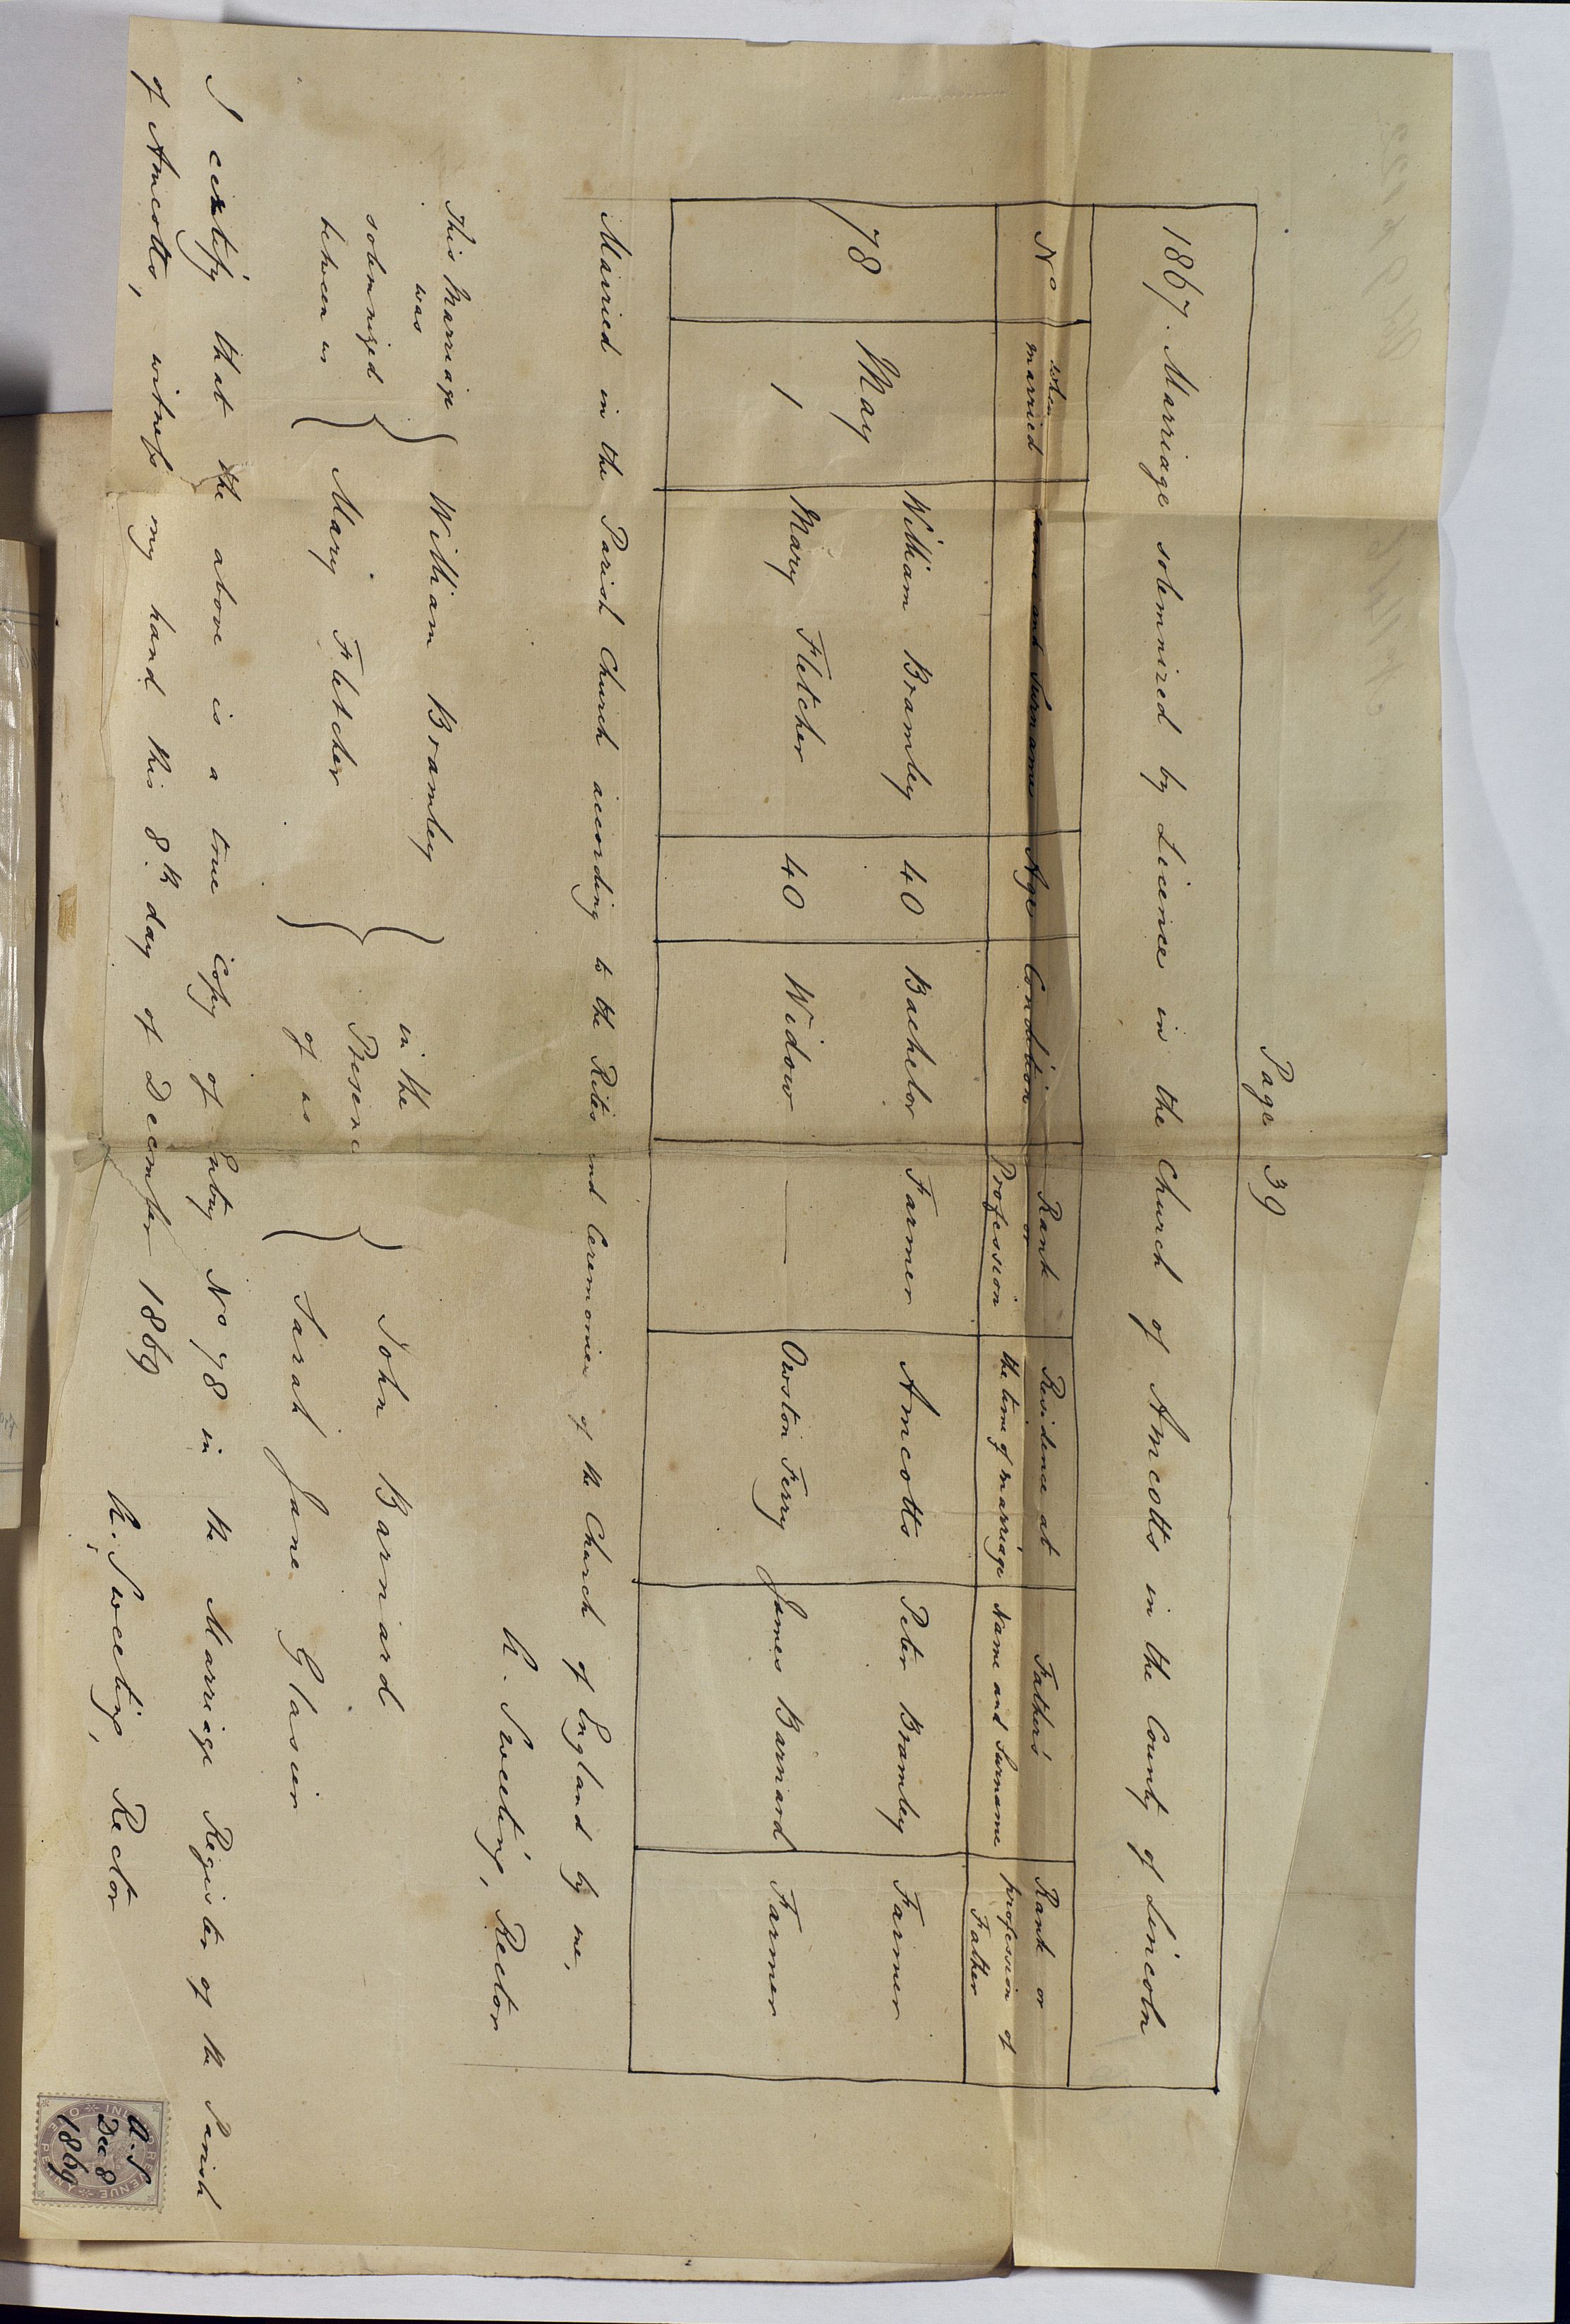 Page 39
1867. Marriage solemnized by Licence in the Church of Amcotts in the County of Lincoln
No
when married
Name and Surname
Age
Condition
Rank or Profession
Residence at the time of marriage
Father's Name and Surname
Rank or profession of Father
78
May 1
William Bramley 40 Bachelor Farmer Amcotts Peter Bramley Farmer
Mary Fletcher 40 Widow — Owston Ferry James Barnard Farmer
Married in the Parish Church according to the Rites and Ceremonies of the Church of England by me,
R. Sweeting, Rector
This Marriage was solemnized between us
William Bramley
Mary Fletcher
in the Presence of us
John Barnard
Sarah Jane Glasier
I certify that the above is a true Copy of Entry No 78 in the Marriage Register of the Parish
of Amcotts, witness my hand this 8th day of December 1869
R. Sweeting, Rector
INLAND REVENUE ONE PENNY
R. S
Dec 8
1869